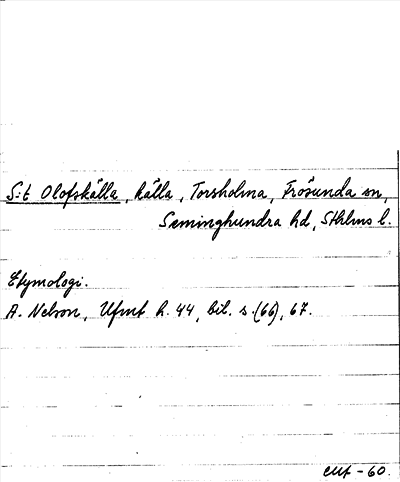 S:t Olofskälla, källa, Torsholma, Frösunda sn,
Seminghundra hd, Sthlms l.
Etymologi.
A. Nelson, Ufmt h. 44, bil. s. (66), 67.
-60.